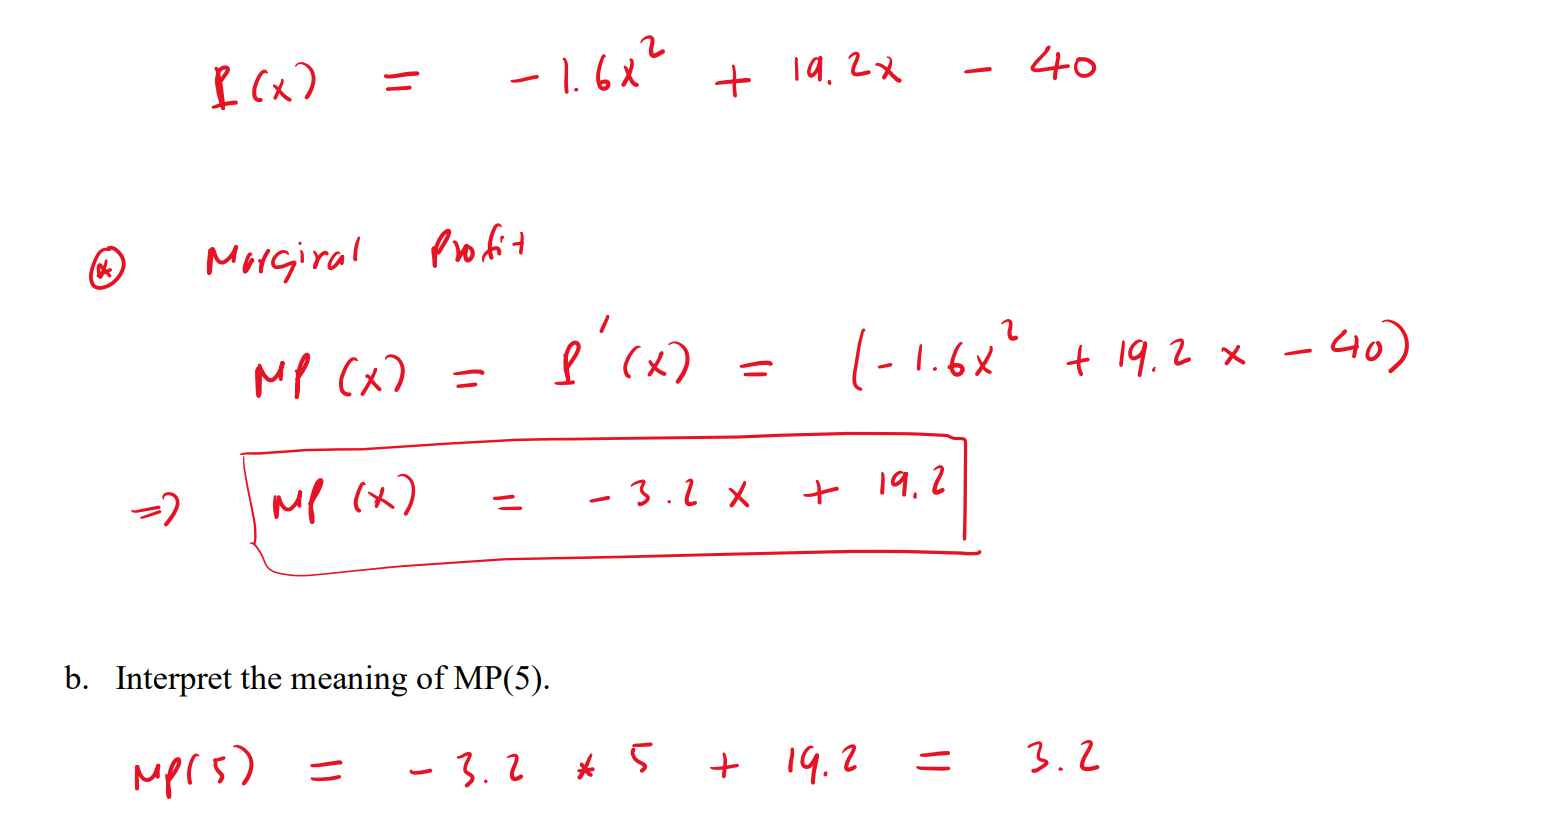 P(x) = -1.6x² + 19.2x - 40
⊛ Marginal Profit
MP(x) = P'(x) = (-1.6x² + 19.2x - 40)
⇒ MP(x) = -3.2x + 19.2
b. Interpret the meaning of MP(5).
MP(5) = -3.2 * 5 + 19.2 = 3.2